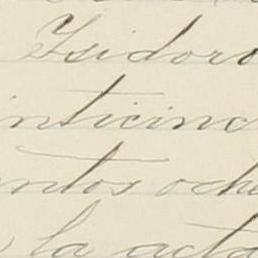 Isidoro
inticinc
entos oche
la acta